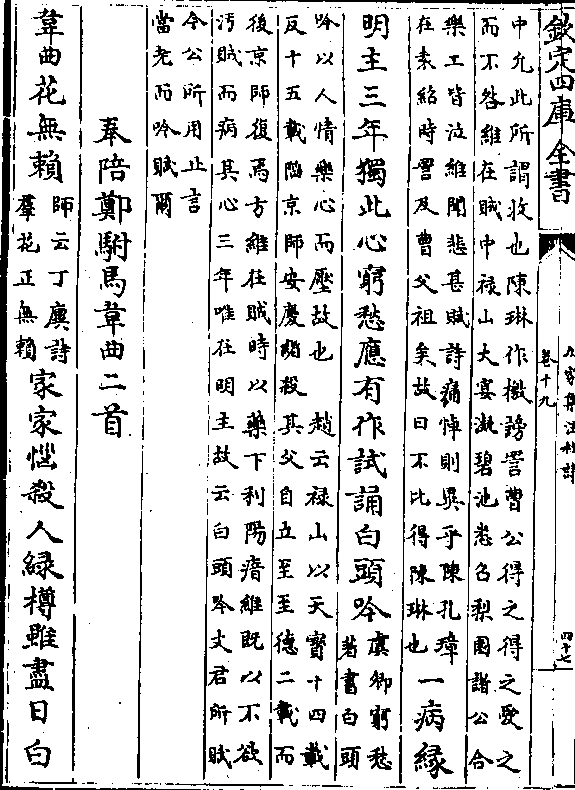 欽定四庫全書
九家集注杜詩
卷十九
四十七
中允此所謂收也陳琳作檄謗詈曹公得之得之愛之
而不咎維在賊中禄山大宴凝碧池悉召梨園諸公合
樂工皆泣維聞悲甚賦詩痛悼則異乎陳孔璋
在袁紹時詈及曹父祖矣故曰不比得陳琳也
一病緣
明主三年獨此心窮愁應有作試誦白頭吟
虞卿窮愁
著書白頭
吟以人情樂心而壓故也 趙云禄山以天寳十四載
反十五載陷京師安慶緒殺其父自立至至德二載而
後京師復焉方維在賊時以藥下利陽瘖維既以不欲
汚賊而病其心三年唯在明主故云白頭吟文君所賦
今公所用止言
當老而吟賦爾
奉陪鄭駙馬韋曲二首
韋曲花無賴
師云丁廙詩
羣花正無賴
家家惱殺人緑樽雖盡日白